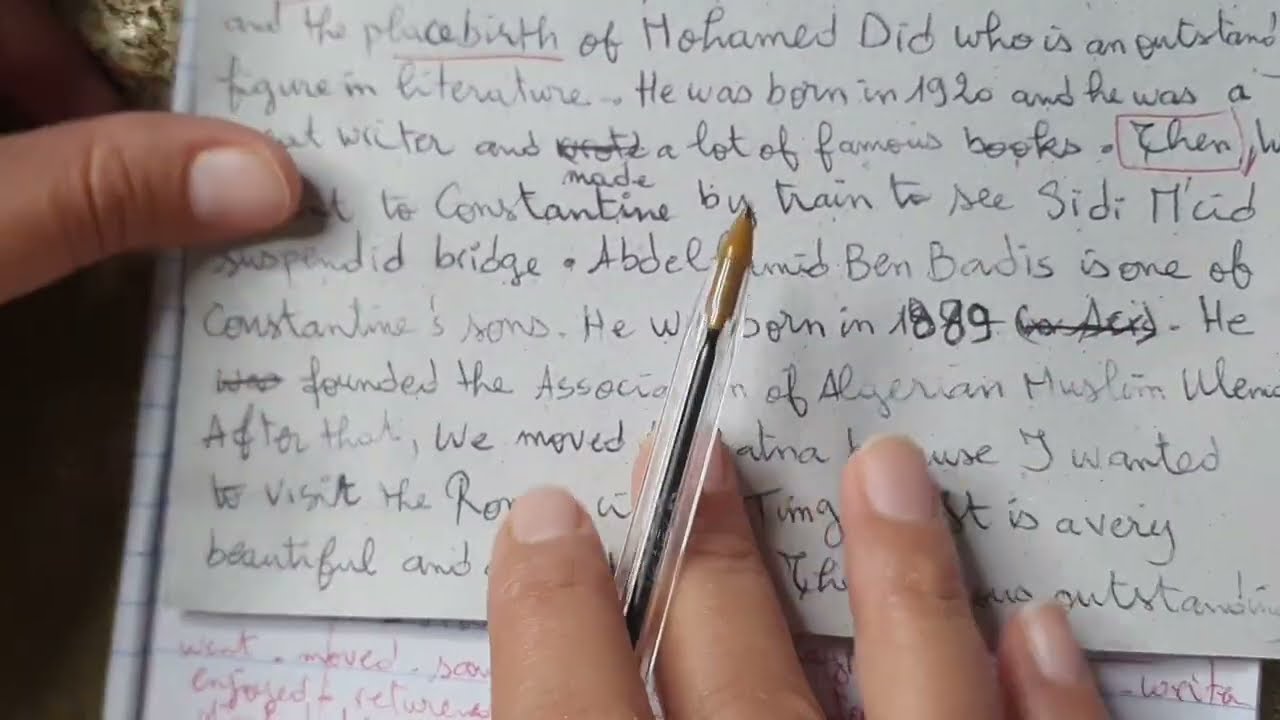 and the placebirth of Mohamed Did who is an outstand
figure in literature. He was born in 1920 and he was a
writer and wrote a lot of famous books. Then,
made
to Constantine by train to see Sidi M'cid
suspendid bridge. Abdel amid Ben Badis is one of
Constantine's sons. He w born in 1889. He
was founded the Associa n of Algerian Muslim Ulema
After that, We moved atna use I wanted
to visit the Ro Timg It is a very
beautiful and Th ous outstandin
went - moved - saw
enjoyed - returned - write